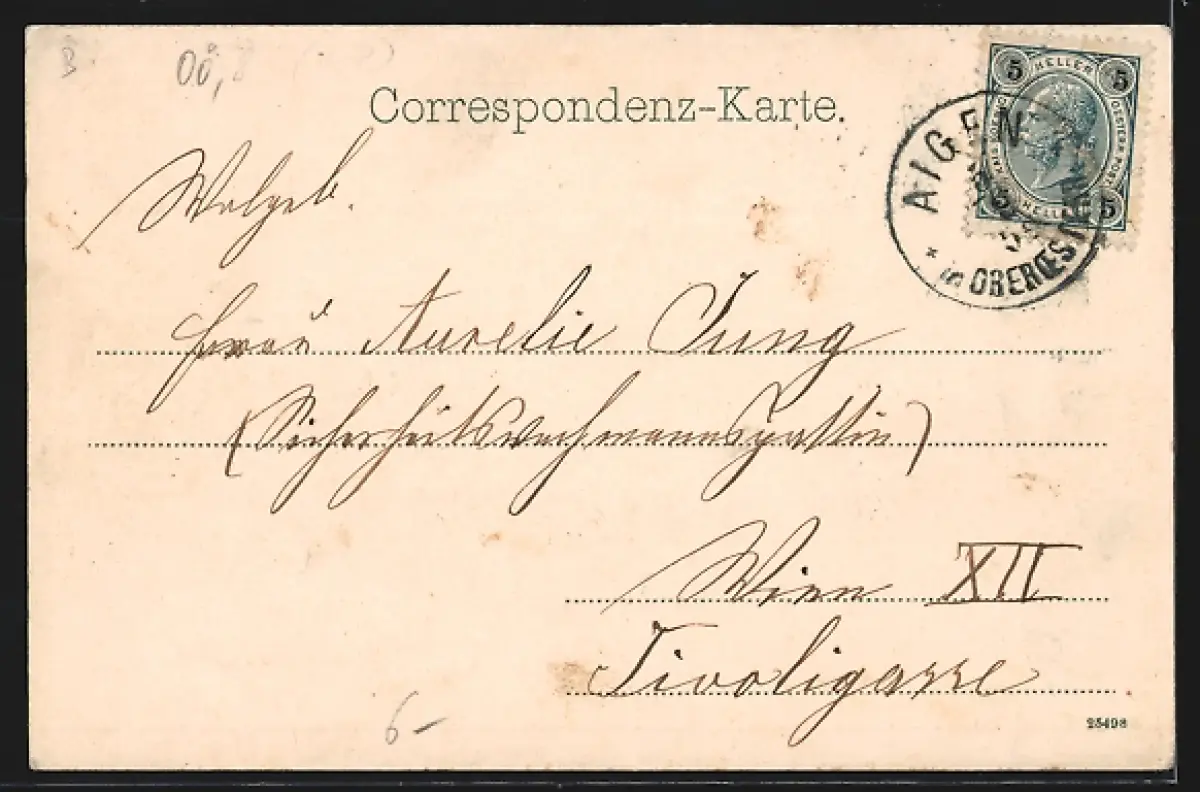 B
OÖ,
Correspondenz-Karte.
5 HELLER 5
5 HELLER 5
AIGEN
* in OBEROEST
Wolgeb.
Frau Aurelie Jung
(Sicherheitswachmannsgattin)
Wien XII
Tivoligasse
6-
25498